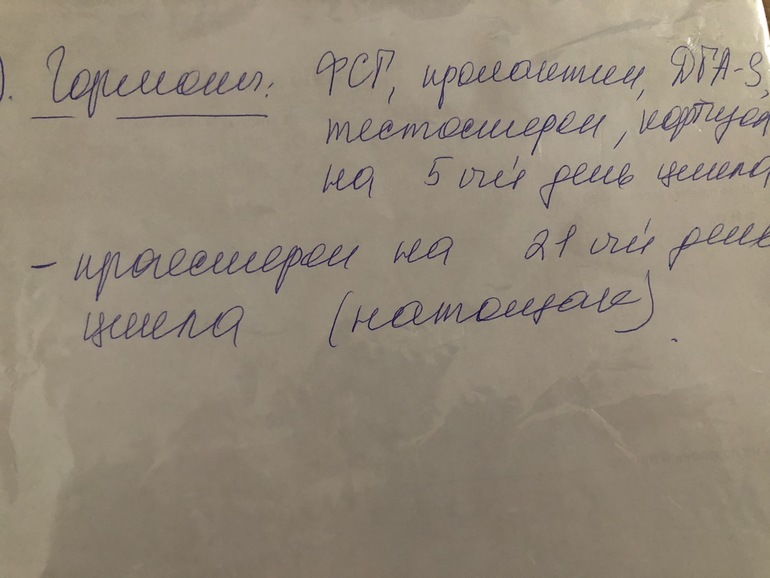 ). Гормоны: ФСГ, пролактин, ДГА-S,
тестостерон, кортизол
на 5 ый день цикла
- прогестерон на 21 ый день
цикла (натощак).